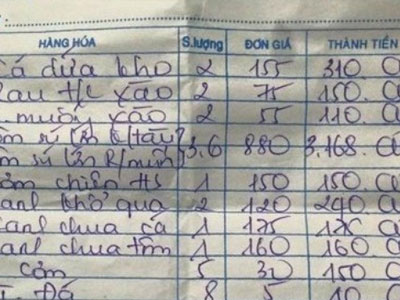 HÀNG HÓA S.lượng ĐƠN GIÁ THÀNH TIỀN
cá dứa kho 2 155 310
rau t/c xào 2 75 150.
muống xào 2 55 110.
sú 3.6 880 3.168.
sú
chiên HS 1 150 150.
canh khổ qua 2 120 240
canh chua cá 1 175 175
canh chua tôm 1 160 160.
cơm 5 30 150
Đá 8 5